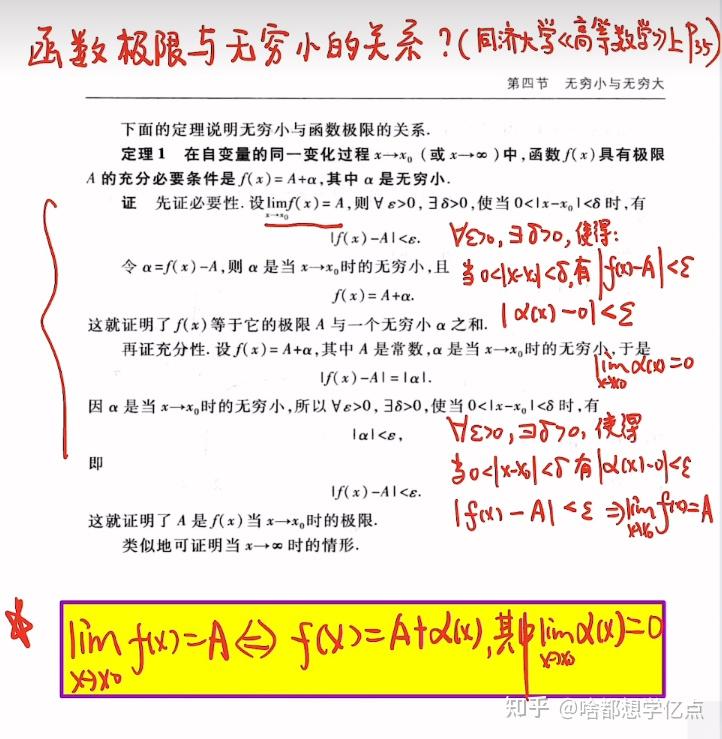 函数极限与无穷小的关系？(同济大学《高等数学》上P35)
第四节 无穷小与无穷大
下面的定理说明无穷小与函数极限的关系.
定理1 在自变量的同一变化过程 x→x₀（或 x→∞）中,函数 f(x)具有极限
A 的充分必要条件是 f(x)=A+α,其中 α 是无穷小.
证 先证必要性.设lim f(x)=A,则∀ ε>0,∃δ>0,使当 0<|x-x₀|<δ 时,有
x→x₀
|f(x)-A|<ε.
∀ε>0,∃δ>0,使得:
令 α=f(x)-A,则 α 是当 x→x₀时的无穷小,且
当0<|x-x₀|<δ,有|f(x)-A|<ε
f(x)=A+α.
|α(x)-0|<ε
这就证明了 f(x)等于它的极限 A 与一个无穷小 α 之和.
再证充分性.设f(x)=A+α,其中 A 是常数,α 是当 x→x₀时的无穷小,于是
lim α(x)=0
x→x₀
|f(x)-A|=|α|.
因 α 是当 x→x₀时的无穷小,所以∀ε>0,∃δ>0,使当 0<|x-x₀|<δ 时,有
|α|<ε,
∀ε>0,∃δ>0,使得
即
当0<|x-x₀|<δ有|α(x)-0|<ε
|f(x)-A|<ε.
|f(x)-A|<ε⇒lim f(x)=A
x→x₀
这就证明了 A 是 f(x)当 x→x₀时的极限.
类似地可证明当 x→∞ 时的情形.
lim f(x)=A⇔f(x)=A+α(x),其中lim α(x)=0
x→x₀ x→x₀
知乎 @啥都想学亿点